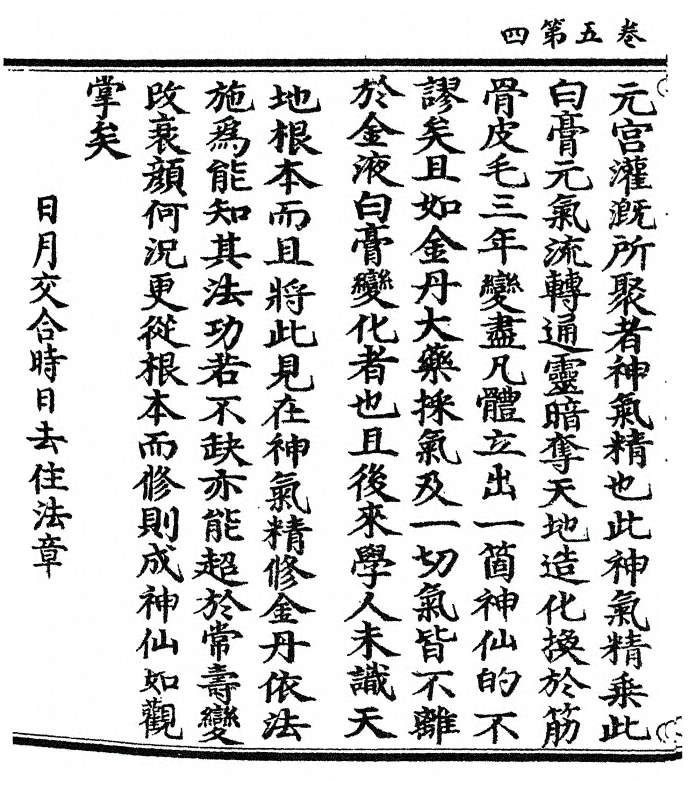 卷五第四
元宮灌溉所聚者神氣精也此神氣精乘此
白膏元氣流轉通靈暗奪天地造化換於筋
骨皮毛三年變盡凡體立出一箇神仙的不
謬矣且如金丹大藥採氣及一切氣皆不離
於金液白膏變化者也且後來學人未識天
地根本而且將此見在神氣精修金丹依法
施為能知其法功若不缺亦能超於常壽變
改衰顏何況更從根本而修則成神仙如觀
掌矣
日月交合時日去住法章